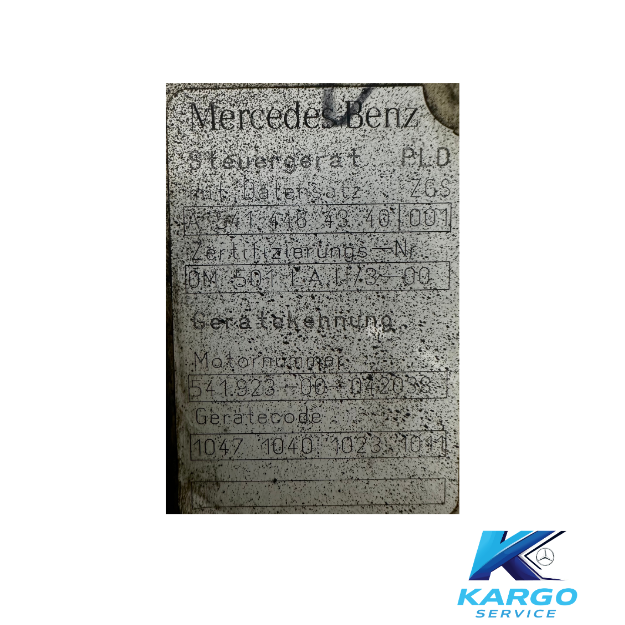 Mercedes-Benz
Steuergerät PLD
mit Datensatz ZGS
A 541 446 43 40 001
Zertifizierungs-Nr.
OM 501 LA I /3-00
Gerätekennung
Motornummer
541.923-00-042038
Gerätecode
1047 1040 1023 1011
KARGO
SERVICE